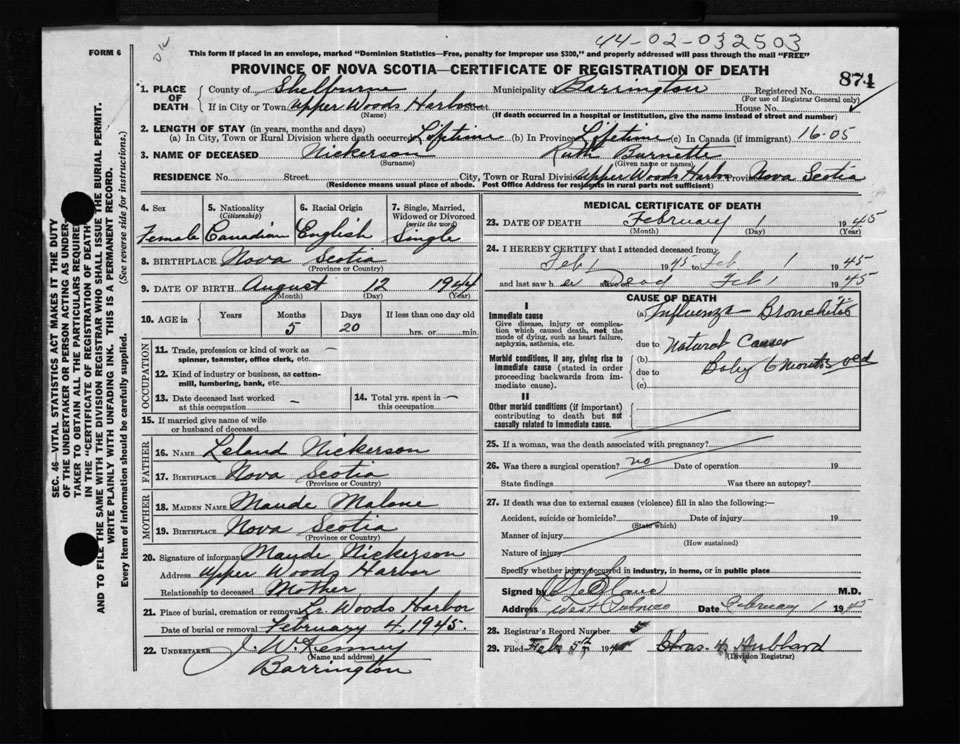 44-02-032503
FORM 6
This form if placed in an envelope, marked "Dominion Statistics—Free, penalty for improper use $300," and properly addressed will pass through the mail "FREE"
PROVINCE OF NOVA SCOTIA—CERTIFICATE OF REGISTRATION OF DEATH
874
1. PLACE OF DEATH County of Shelburne Municipality of Barrington Registered No.
(For use of Registrar General only)
If in City or Town Upper Woods Harbor Street House No.
(Name) (If death occurred in a hospital or institution, give the name instead of street and number)
2. LENGTH OF STAY (in years, months and days)
(a) In City, Town or Rural Division where death occurred Lifetime (b) In Province Lifetime (c) In Canada (if immigrant) 16-05
3. NAME OF DECEASED Nickerson Ruth Burnette
(Surname) (Given name or names)
RESIDENCE No. Street City, Town or Rural Division Upper Woods Harbor Province Nova Scotia
(Residence means usual place of abode. Post Office Address for residents in rural parts not sufficient)
4. Sex
Female
5. Nationality
(Citizenship)
Canadian
6. Racial Origin
English
7. Single, Married, Widowed or Divorced
(write the word)
Single
8. BIRTHPLACE Nova Scotia
(Province or Country)
9. DATE OF BIRTH August 12 1944
(Month) (Day) (Year)
10. AGE in Years Months Days If less than one day old
5 20 hrs. or min.
OCCUPATION
11. Trade, profession or kind of work as —
spinner, teamster, office clerk, etc.
12. Kind of industry or business, as cotton-
mill, lumbering, bank, etc.
13. Date deceased last worked at this occupation —
14. Total yrs. spent in this occupation —
15. If married give name of wife
or husband of deceased
FATHER
16. NAME Leland Nickerson
17. BIRTHPLACE Nova Scotia
(Province or Country)
MOTHER
18. MAIDEN NAME Maude Malone
19. BIRTHPLACE Nova Scotia
(Province or Country)
20. Signature of informant Maude Nickerson
Address Upper Woods Harbor
Relationship to deceased Mother
21. Place of burial, cremation or removal Lr. Woods Harbor
Date of burial or removal February 4, 1945.
22. UNDERTAKER J. W. Kenney
(Name and address)
Barrington
MEDICAL CERTIFICATE OF DEATH
23. DATE OF DEATH February 1 1945
(Month) (Day) (Year)
24. I HEREBY CERTIFY that I attended deceased from
Feb 1 1945 to Feb 1 1945
and last saw her Dead Feb 1 1945
CAUSE OF DEATH
I
Immediate cause
Give disease, injury or complication which caused death, not the mode of dying, such as heart failure, asphyxia, asthenia, etc.
(a) Influenza - Bronchitis
due to Natural Causes
Morbid conditions, if any, giving rise to immediate cause (stated in order proceeding backwards from immediate cause).
(b)
due to Baby 6 months old
(c)
II
Other morbid conditions (if important) contributing to death but not causally related to immediate cause.
25. If a woman, was the death associated with pregnancy?
26. Was there a surgical operation? no Date of operation 19
State findings Was there an autopsy?
27. If death was due to external causes (violence) fill in also the following:—
Accident, suicide or homicide? Date of injury 19
(State which)
Manner of injury
(How sustained)
Nature of injury
Specify whether injury occurred in industry, in home, or in public place
Signed by M.D.
Address West Pubnico Date February 1 1945
28. Registrar's Record Number 5
29. Filed Feb 5th 194 Chas. Hubbard
(Division Registrar)
SEC. 46—VITAL STATISTICS ACT MAKES IT THE DUTY
OF THE UNDERTAKER OR PERSON ACTING AS UNDER-
TAKER TO OBTAIN ALL THE PARTICULARS REQUIRED
IN THE "CERTIFICATE OF REGISTRATION OF DEATH"
AND TO FILE THE SAME WITH THE DIVISION REGISTRAR WHO SHALL ISSUE THE BURIAL PERMIT.
WRITE PLAINLY WITH UNFADING INK. THIS IS A PERMANENT RECORD.
Every item of information should be carefully supplied. (See reverse side for instructions.)